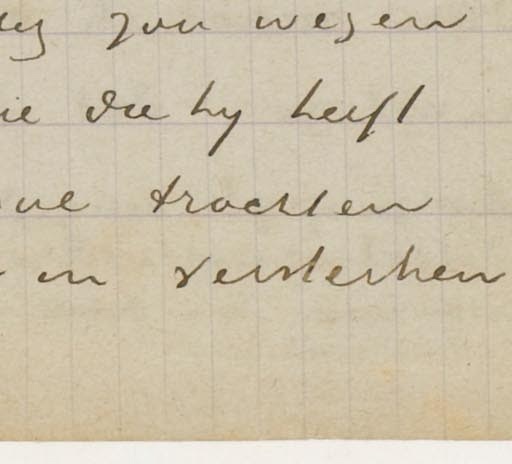 zou wezen
ie die hy heeft
trachten
en versterken